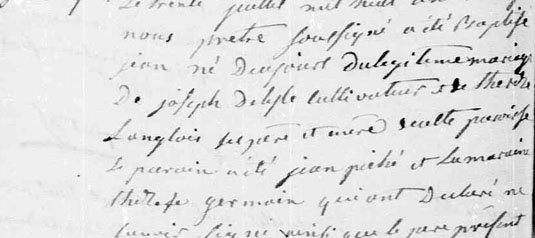 Le trente juillet mil huit
nous pretre soussigné a été Baptisé
jean né Dujour du legitime mariage
De joseph Delisle Cultivateur et de therese
Langlois ses pere et mere de cette paroisse
Le parain a été jean piché et la maraine
therese germain qui ont Declaré ne
savoir signer ainsi que le pere présent